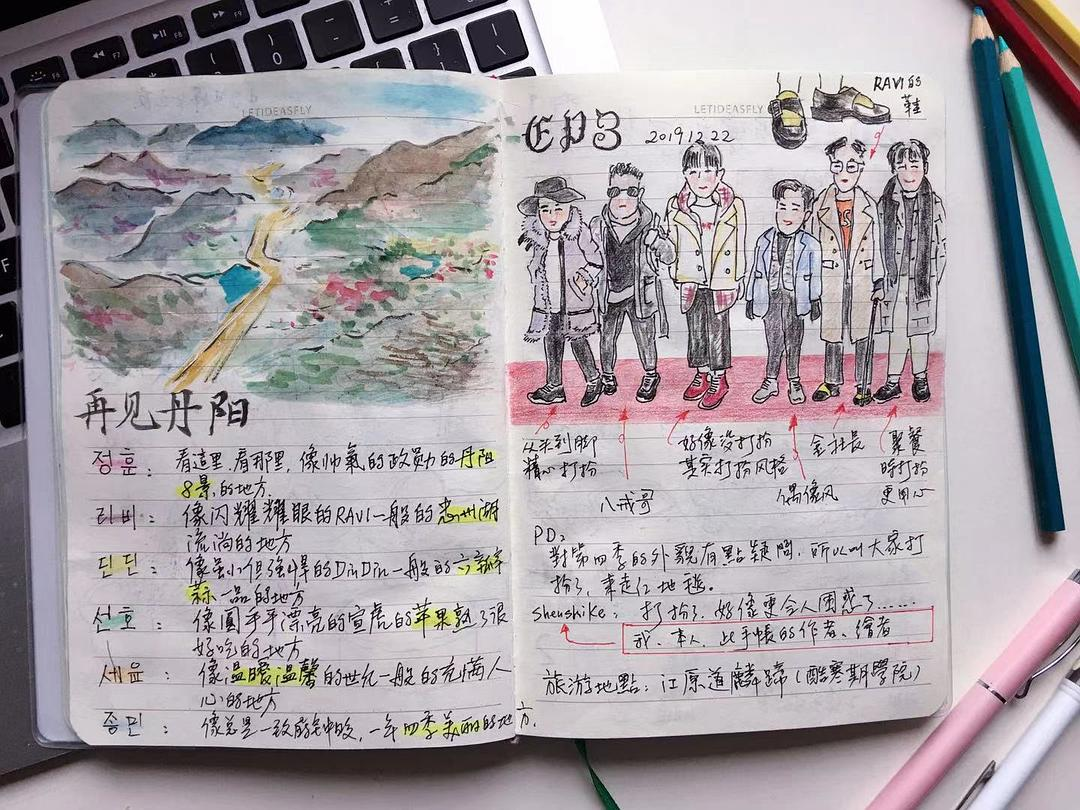 LETIDEASFLY
再见丹阳
정훈：看這里,看那里,像帅氣的政勋的丹阳
8景的地方.
라비：像闪耀耀眼的RAVI一般的忠州湖
流淌的地方
딘딘：像虽小但強悍的DinDin一般的六瓣
蒜一品的地方
선호：像圓乎乎漂亮的宣虎的苹果熟了很
好吃的地方
세윤：像温暖温馨的世允一般的充满人
心的地方
종민：像总是一致的钟旼,一年四季美丽的地方.
LETIDEASFLY
RAVI的
鞋
EP3 2019 12 22
从头到脚
精心打扮
八戒哥
好像没打扮
其实打扮风格
偶像风
金社長
聚餐
時打扮
更用心
PD：
對第四季的外貌有點疑問,所以叫大家打
扮了,来走红地毯。
shenshike：打扮了,好像更令人困惑了......
我、本人、此手帳的作者、繪者
旅游地點：江原道麟蹄(酷寒期學院)
F6
F7
F8
F9